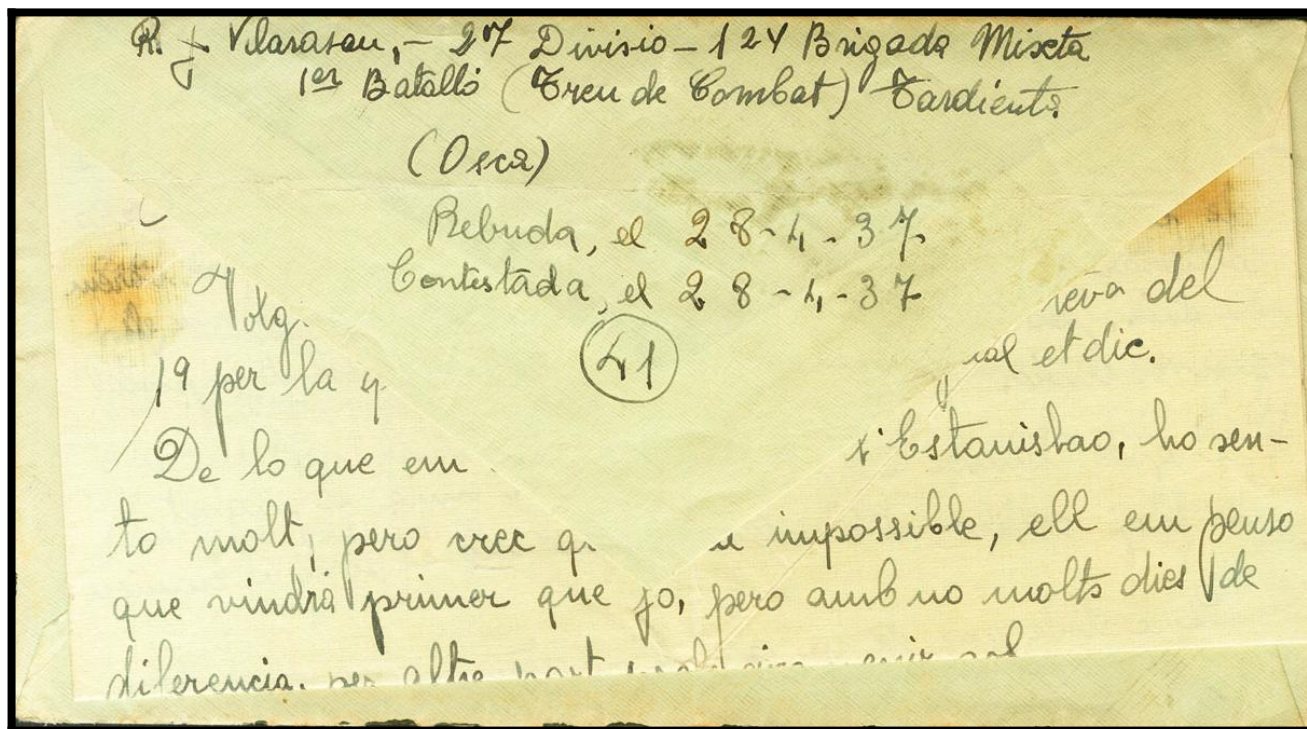 R. J. Vilarasau, - 27 Divisio - 124 Brigada Mixta
1er Batalló (Treu de Combat) Tardienta
(Osca)
Rebuda, el 28-4-37.
Contestada, el 28-4-37
41
reva del
19 per la q
ual et dic.
De lo que em
Estanislao, ho sen-
to molt, pero crec q
impossible, ell em penso
que vindrà primer que jo, pero amb no molts dies de
diferencia, per altre part